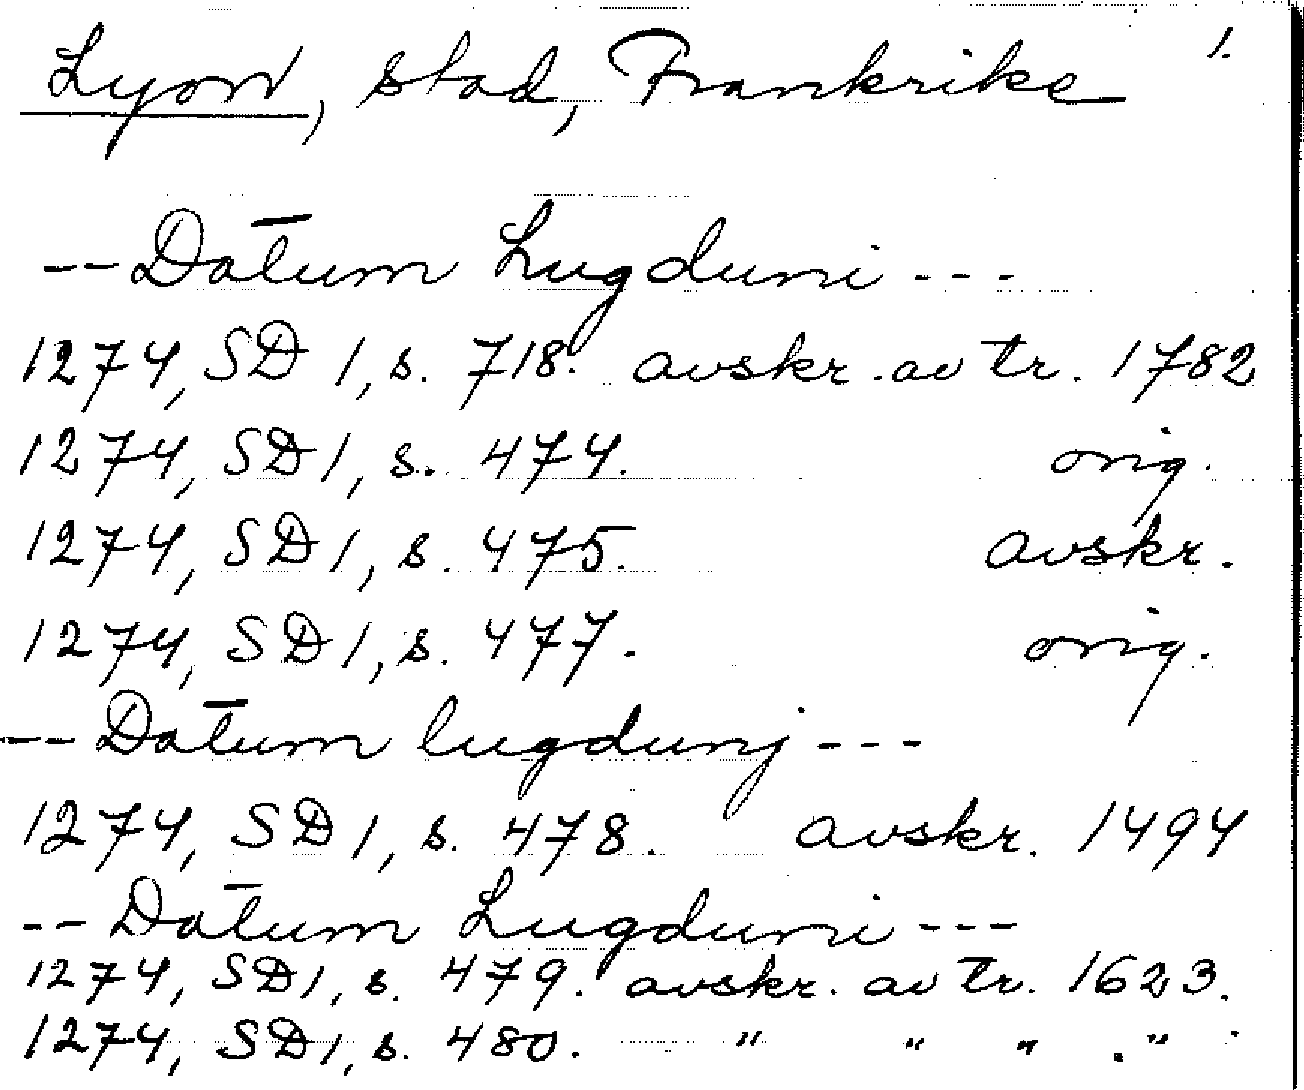 Lyon, stad, Frankrike 1.
--Datum Lugduni---
1274, SD 1, s. 718. avskr. av tr. 1782
1274, SD 1, s. 474. orig.
1274, SD 1, s. 475. avskr.
1274, SD 1, s. 477. orig.
--Datum lugdunj---
1274, SD 1, s. 478. avskr. 1494
--Datum Lugduni---
1274, SD 1, s. 479. avskr. av tr. 1623.
1274, SD 1, s. 480. " " " . " .